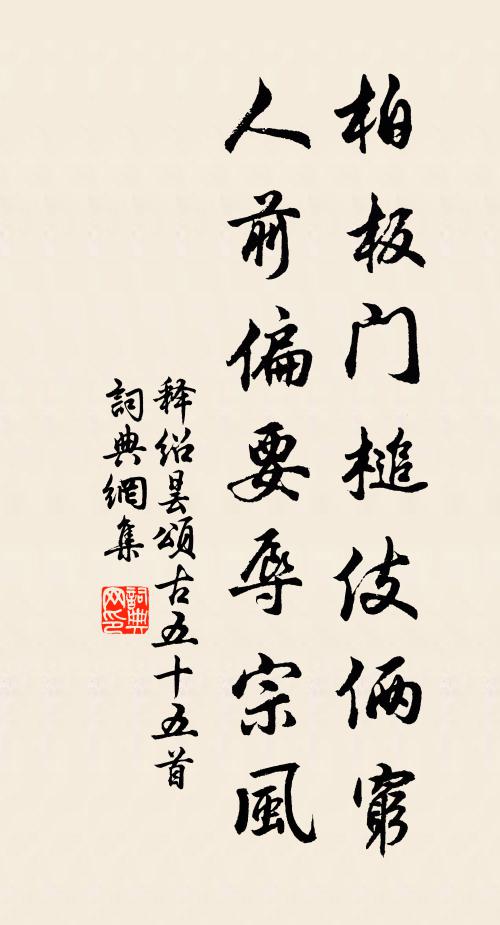 柏板门槌伎俩窮
人前偏要辱宗風
释绍曇頌古五十五首
詞典網集
詞典网印